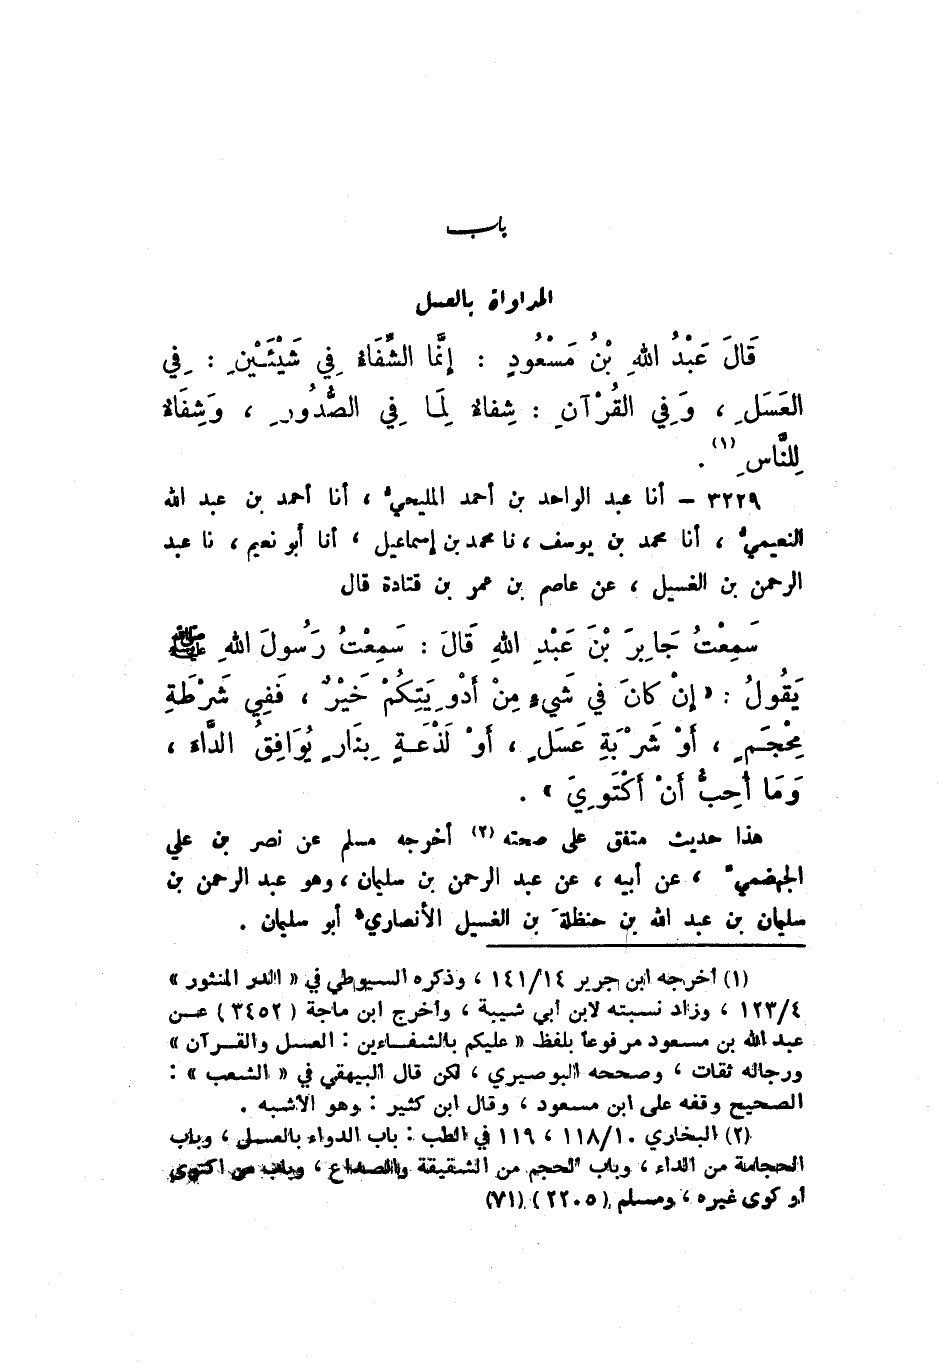 باب
المداواة بالعسل
قَالَ عَبْدُ اللهِ بْنُ مَسْعُودٍ : إِنَّمَا الشِّفَاءُ فِي شَيْئَيْنِ : فِي
العَسَلِ ، وَفِي القُرْآنِ : شِفَاءٌ لِمَا فِي الصُّدُورِ ، وَشِفَاءٌ
لِلنَّاسِ (١) .
٣٢٢٩ – أنا عبد الواحد بن أحمد المليحيُّ ، أنا أحمد بن عبد الله
النعيميُّ ، أنا محمد بن يوسف ، نا محمد بن إسماعيل ، أنا أبو نعيم ، نا عبد
الرحمن بن الغسيل ، عن عاصم بن عمر بن قتادة قال
سَمِعْتُ جَابِرَ بْنَ عَبْدِ اللهِ قَالَ : سَمِعْتُ رَسُولَ اللهِ ﷺ
يَقُولُ : « إِنْ كَانَ فِي شَيْءٍ مِنْ أَدْوِيَتِكُمْ خَيْرٌ ، فَفِي شَرْطَةِ
مِحْجَمٍ ، أَوْ شَرْبَةِ عَسَلٍ ، أَوْ لَذْعَةٍ بِنَارٍ يُوَافِقُ الدَّاءَ ،
وَمَا أُحِبُّ أَنْ أَكْتَوِيَ » .
هذا حديث متفق على صحته (٢) أخرجه مسلم عن نصر بن علي
الجهضميِّ ، عن أبيه ، عن عبد الرحمن بن سليمان ، وهو عبد الرحمن بن
سليمان بن عبد الله بن حنظلة َ بن الغسيل الأنصاريُّ أبو سليمان .
(١) أخرجه ابن جرير ١٤١/١٤ ، وذكره السيوطي في « الدر المنثور »
١٢٣/٤ ، وزاد نسبته لابن أبي شيبة ، وأخرج ابن ماجة ( ٣٤٥٢ ) عن
عبد الله بن مسعود مرفوعاً بلفظ « عليكم بالشفاءين : العسل والقرآن »
ورجاله ثقات ، وصححه البوصيري ، لكن قال البيهقي في « الشعب » :
الصحيح وقفه على ابن مسعود ، وقال ابن كثير : وهو الأشبه .
(٢) البخاري ١١٨/١٠ ، ١١٩ في الطب : باب الدواء بالعسل ، وباب
الحجامة من الداء ، وباب الحجم من الشقيقة والصداع ، وباب من اكتوى
أو كوى غيره ، ومسلم ( ٢٢٠٥ ) (٧١)